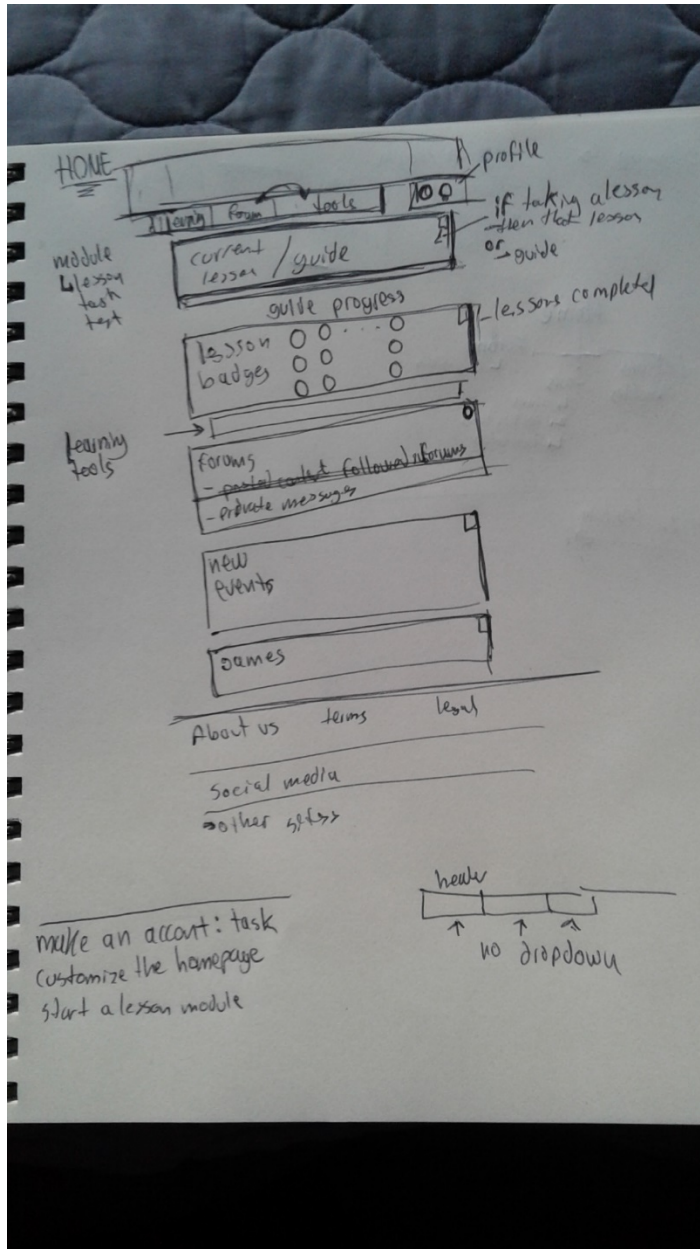 HOME
profile
learning forum tools
if taking a lesson
then that lesson
or
→ guide
module
lesson
task
test
current
lesson / guide
guide progress
lessons completed
lesson
badges
Learning
tools
forums
- followed forums
- private messages
new
events
games
About us terms legal
social media
other sites
header
no dropdown
make an account: task
customize the homepage
start a lesson module